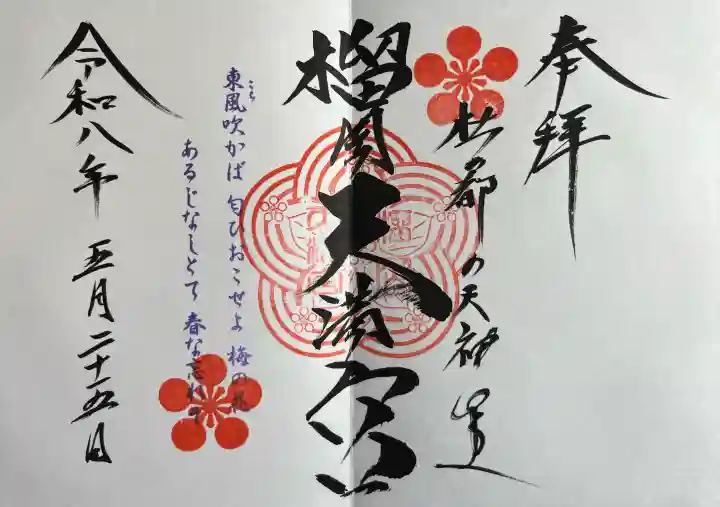 奉拝
杜の都の天神さま
榴岡天満宮
東風吹かば 匂ひおこせよ 梅の花
こち
あるじなしとて 春な忘れそ
令和八年 五月二十五日